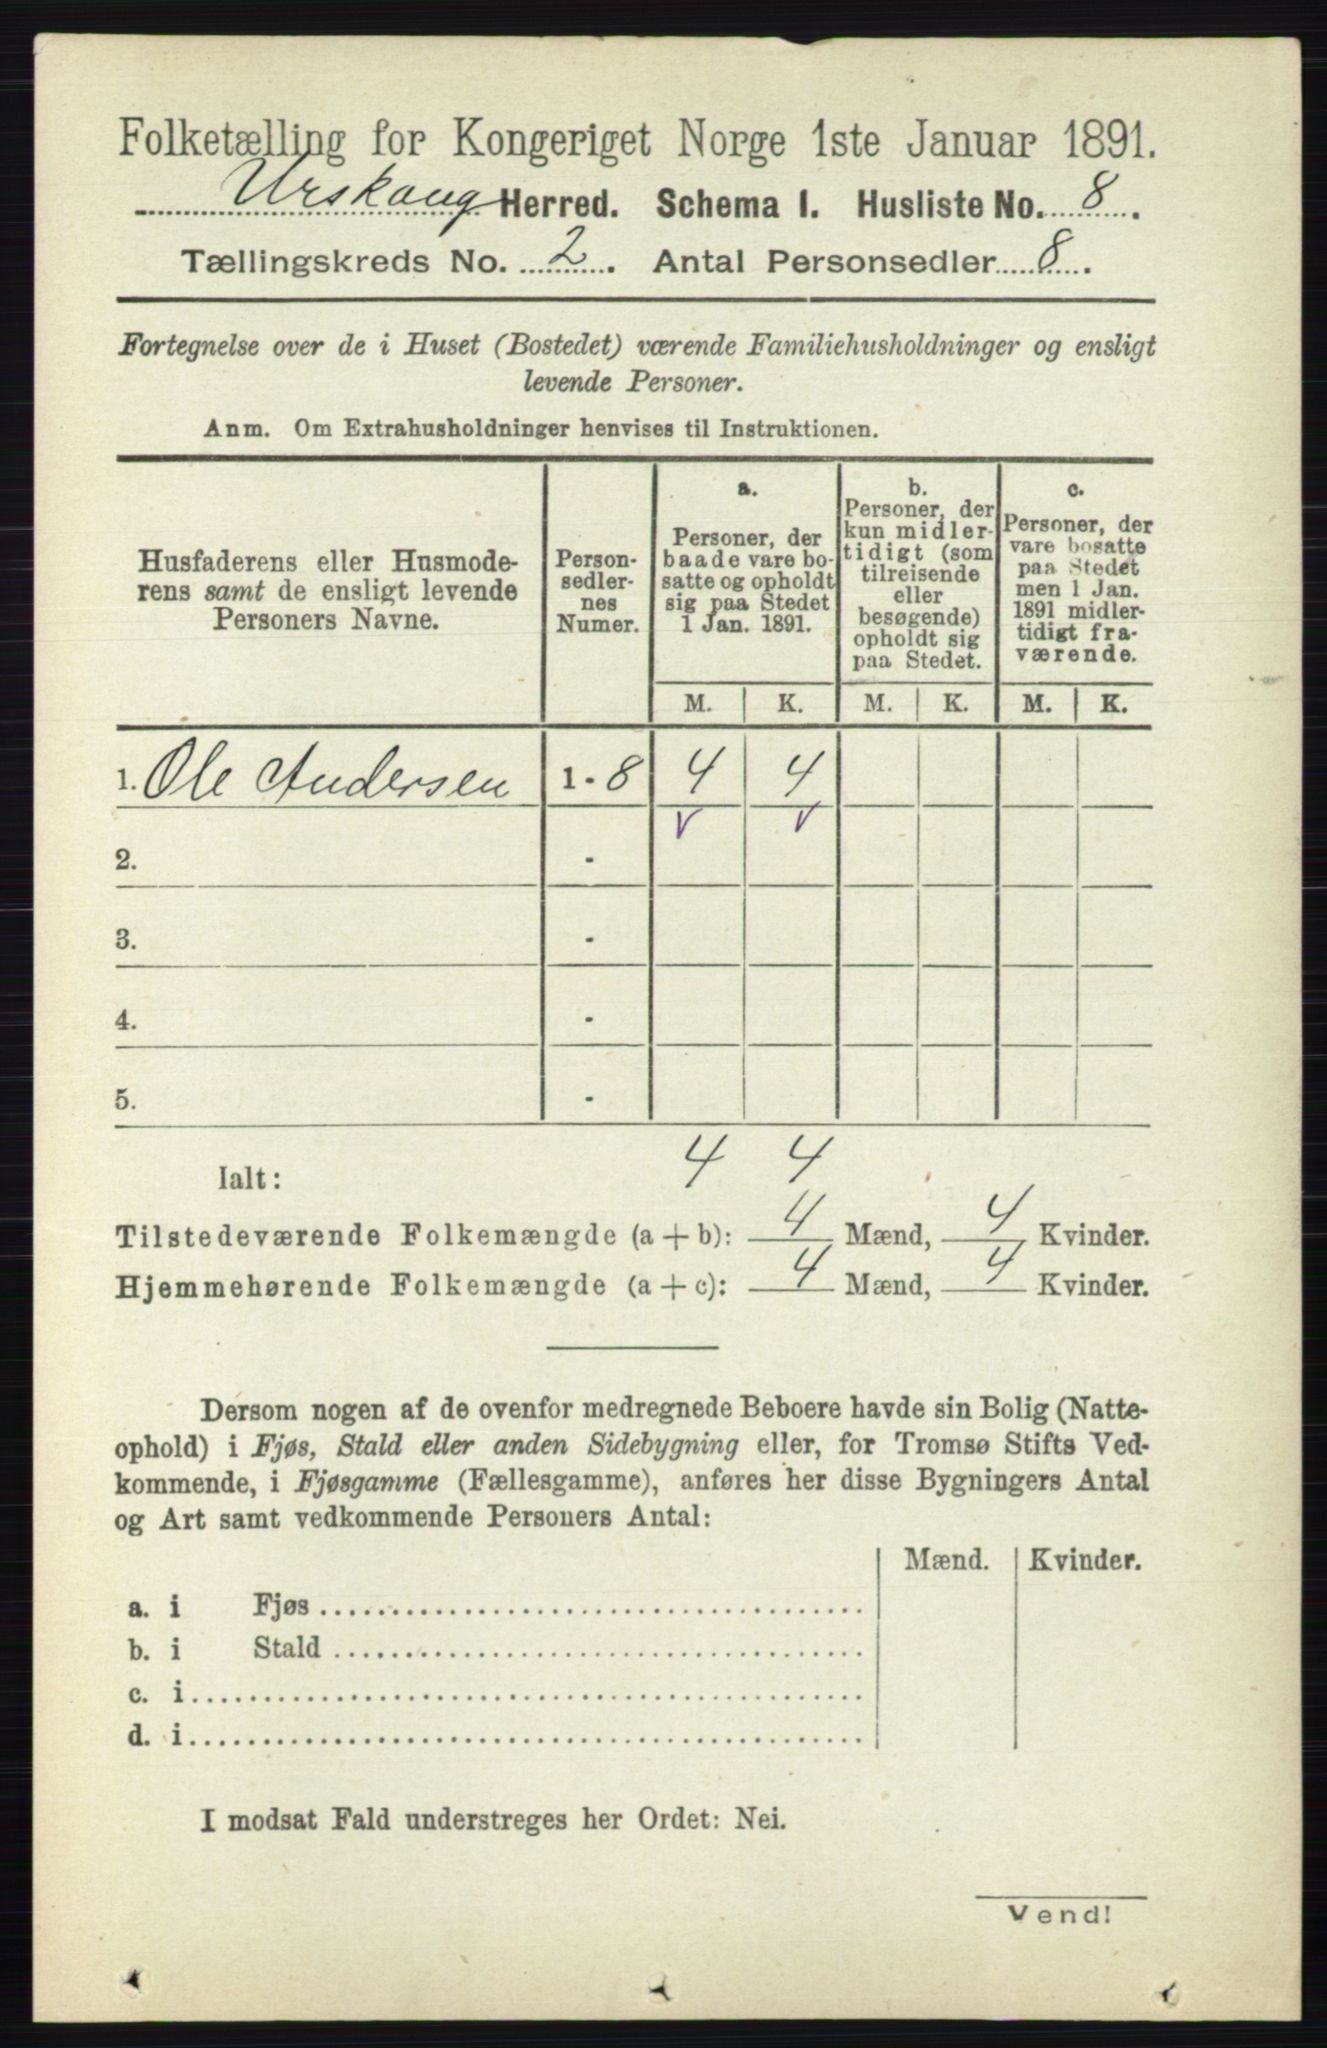 Folketælling for Kongeriget Norge 1ste Januar 1891.
Urskoug Herred. Schema I. Husliste No. 8.
Tællingskreds No. 2. Antal Personsedler 8.
Fortegnelse over de i Huset (Bostedet) værende Familiehusholdninger og ensligt
levende Personer.
Anm. Om Extrahusholdninger henvises til Instruktionen.
Husfaderens eller Husmode-
rens samt de ensligt levende
Personers Navne.
Person-
sedler-
nes
Numer.
a.
Personer, der
baade vare bo-
satte og opholdt
sig paa Stedet
1 Jan. 1891.
b.
Personer, der
kun midler-
tidigt (som
tilreisende
eller
besøgende)
opholdt sig
paa Stedet.
c.
Personer, der
vare bosatte
paa Stedet
men 1 Jan.
1891 midler-
tidigt fra-
værende.
M. K. M. K. M. K.
1. Ole Andersen 1 - 8 4 4
2. -
3. -
4. -
5. -
Ialt: 4 4
Tilstedeværende Folkemængde (a + b): 4 Mænd, 4 Kvinder.
Hjemmehørende Folkemængde (a + c): 4 Mænd, 4 Kvinder.
Dersom nogen af de ovenfor medregnede Beboere havde sin Bolig (Natte-
ophold) i Fjøs, Stald eller anden Sidebygning eller, for Tromsø Stifts Ved-
kommende, i Fjøsgamme (Fællesgamme), anføres her disse Bygningers Antal
og Art samt vedkommende Personers Antal:
Mænd. Kvinder.
a. i Fjøs
b. i Stald
c. i
d. i
I modsat Fald understreges her Ordet: Nei.
Vend!